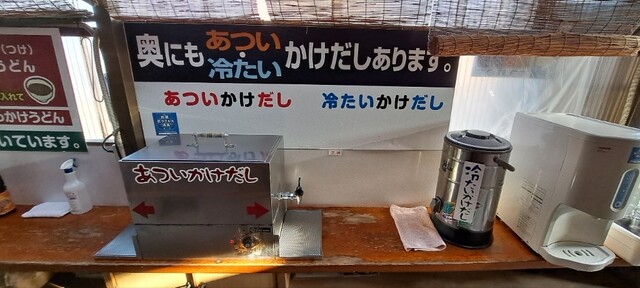 (つけ)
うどん
入れて
かけうどん
いています。
奥にも あつい・冷たい かけだしあります。
あついかけだし 冷たいかけだし
あついかけだし
冷たいかけだし